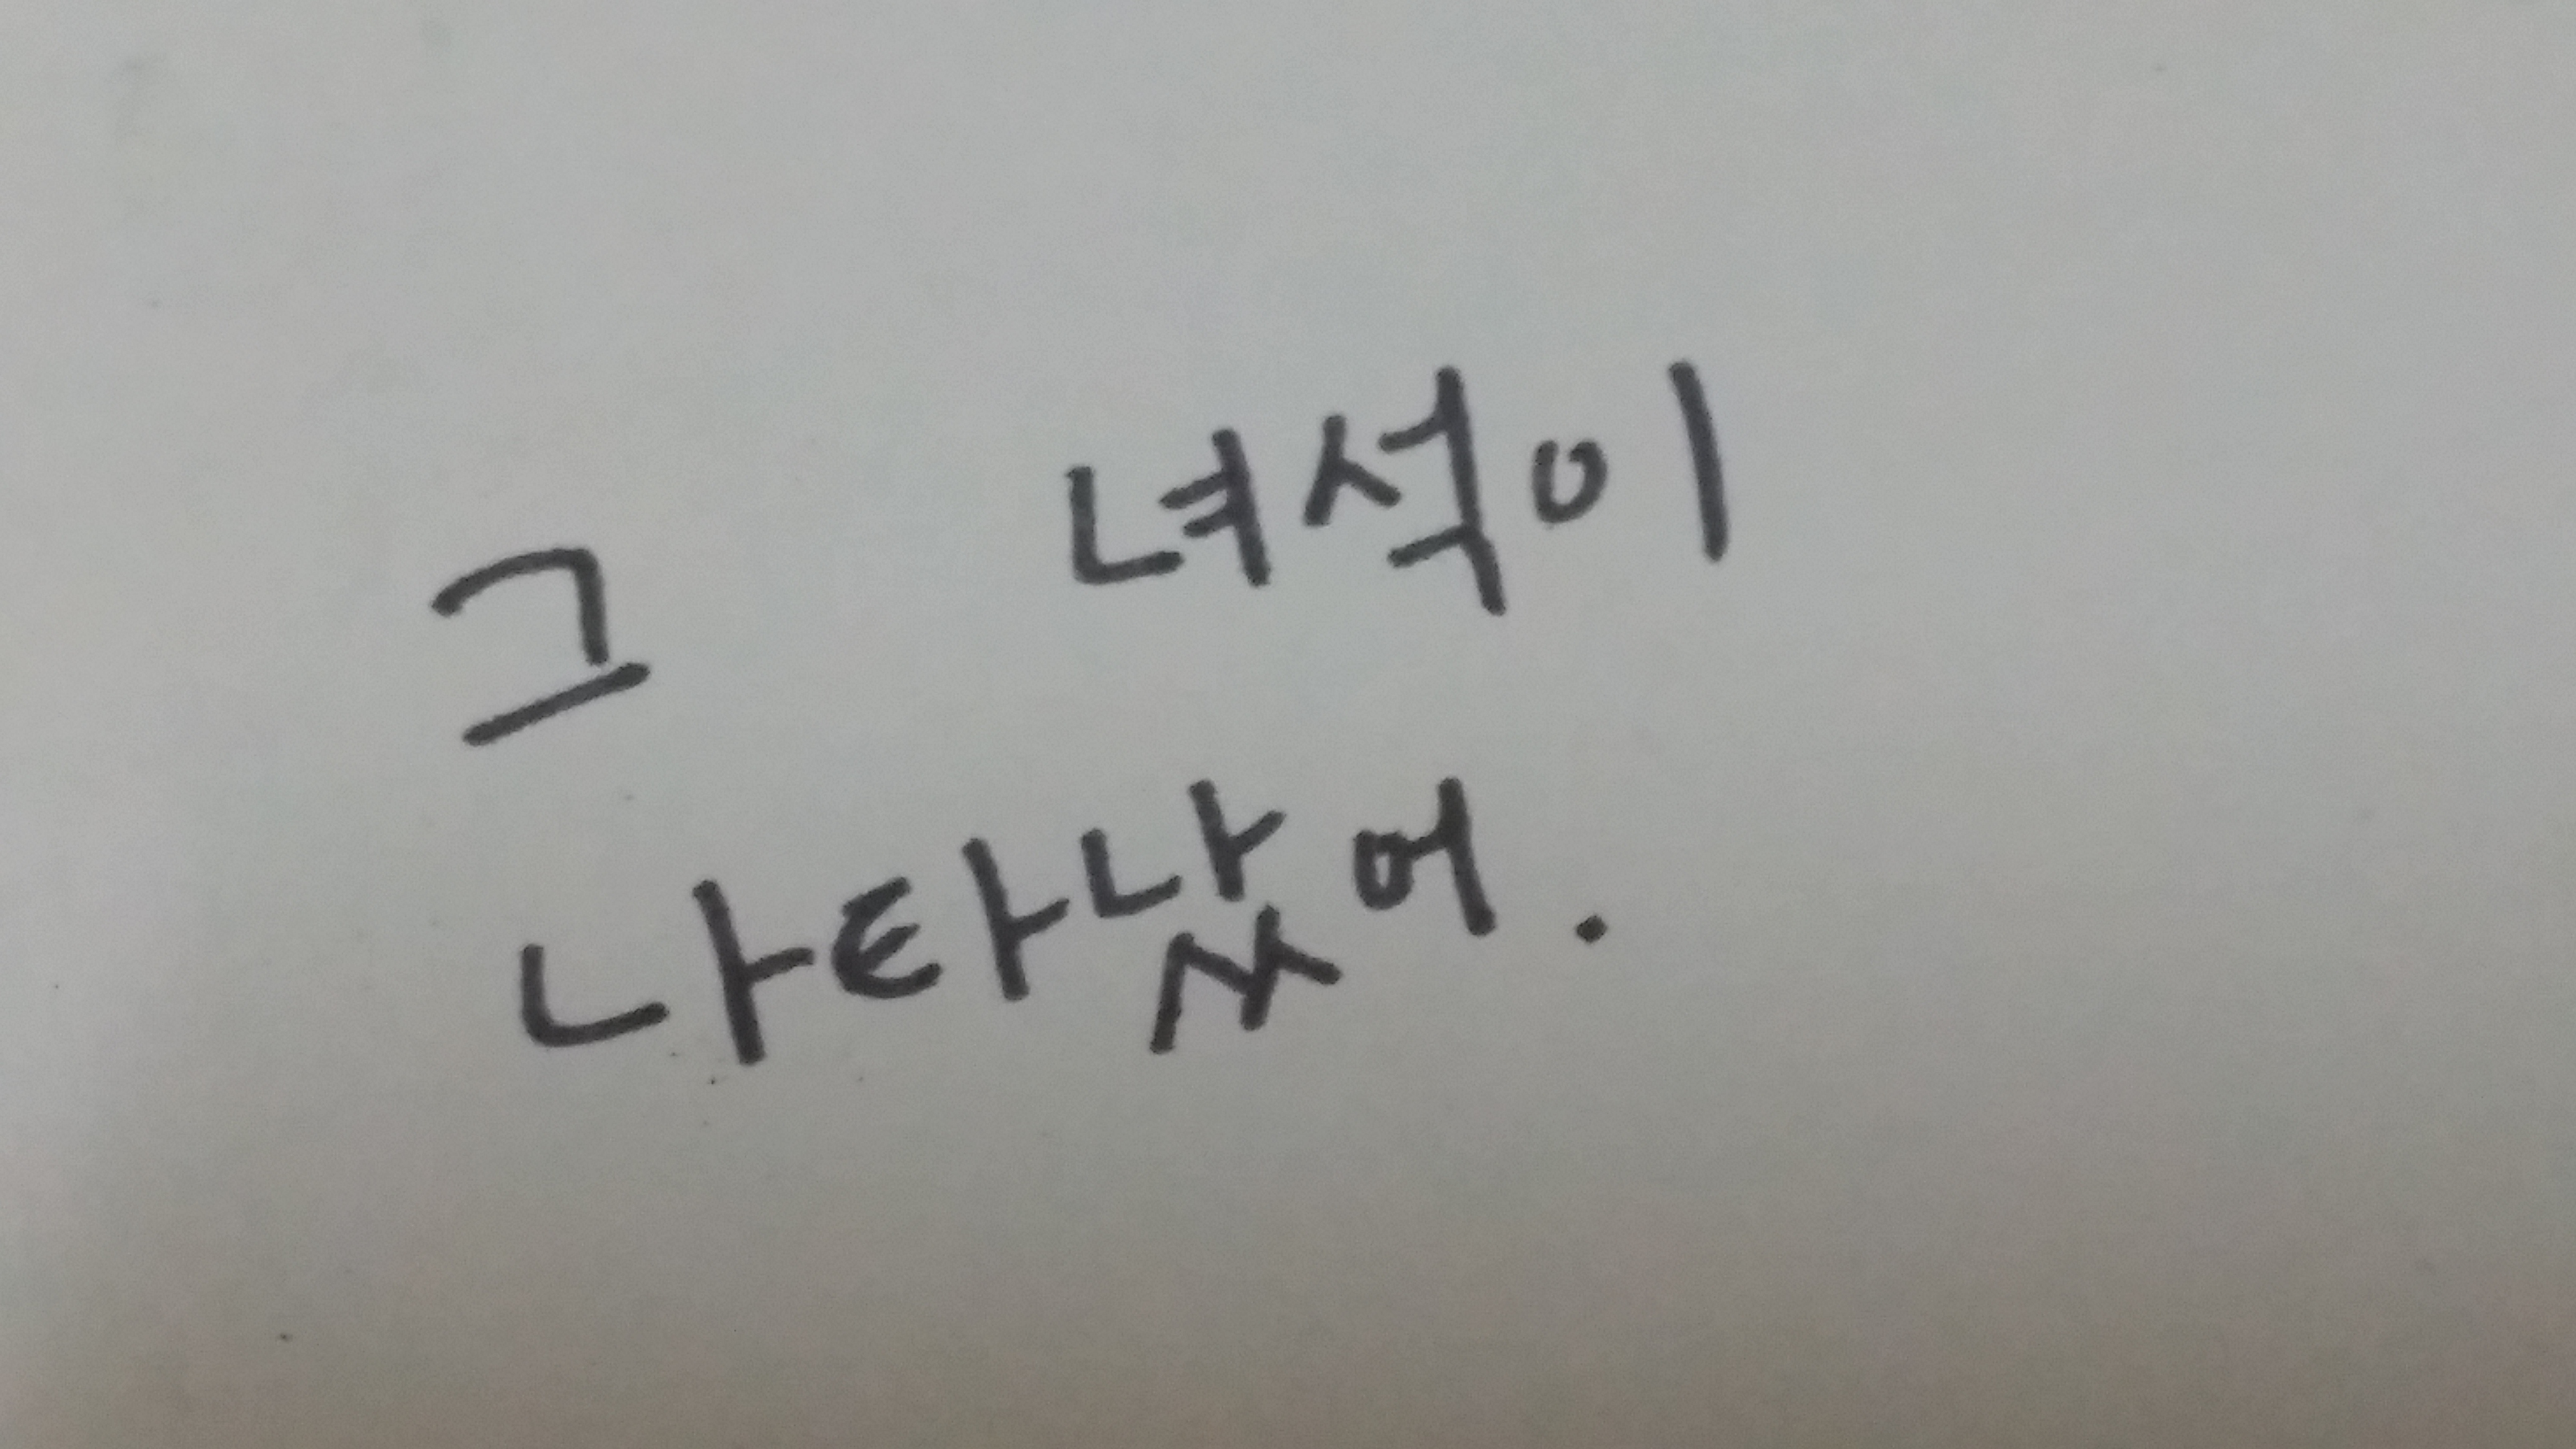 그 녀석이
나타났어.